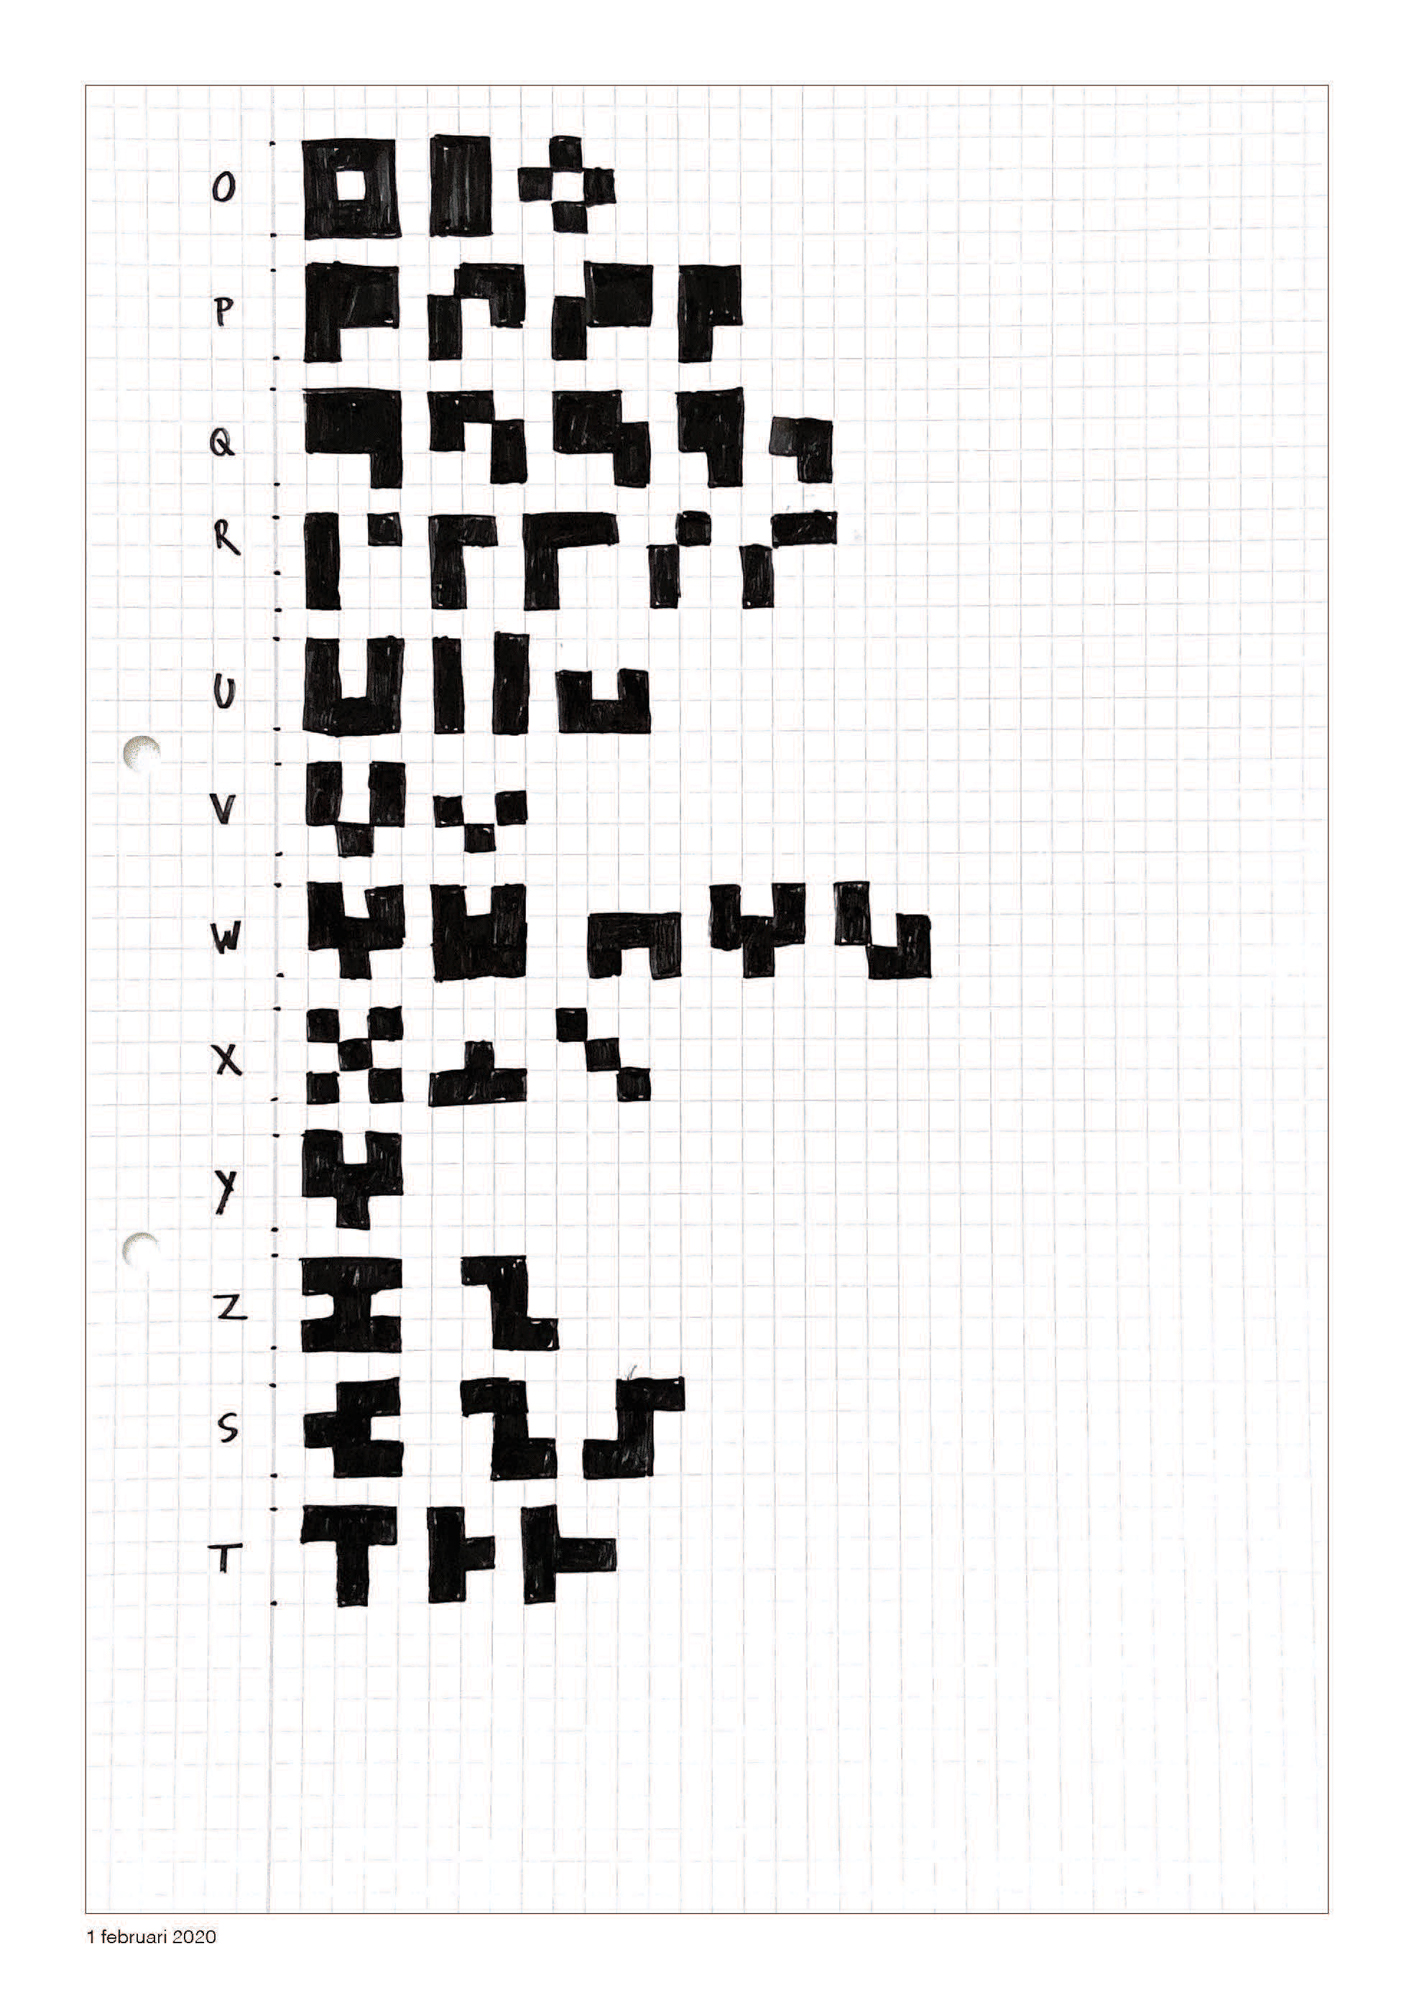 O
P
Q
R
U
V
W
X
Y
Z
S
T
1 februari 2020